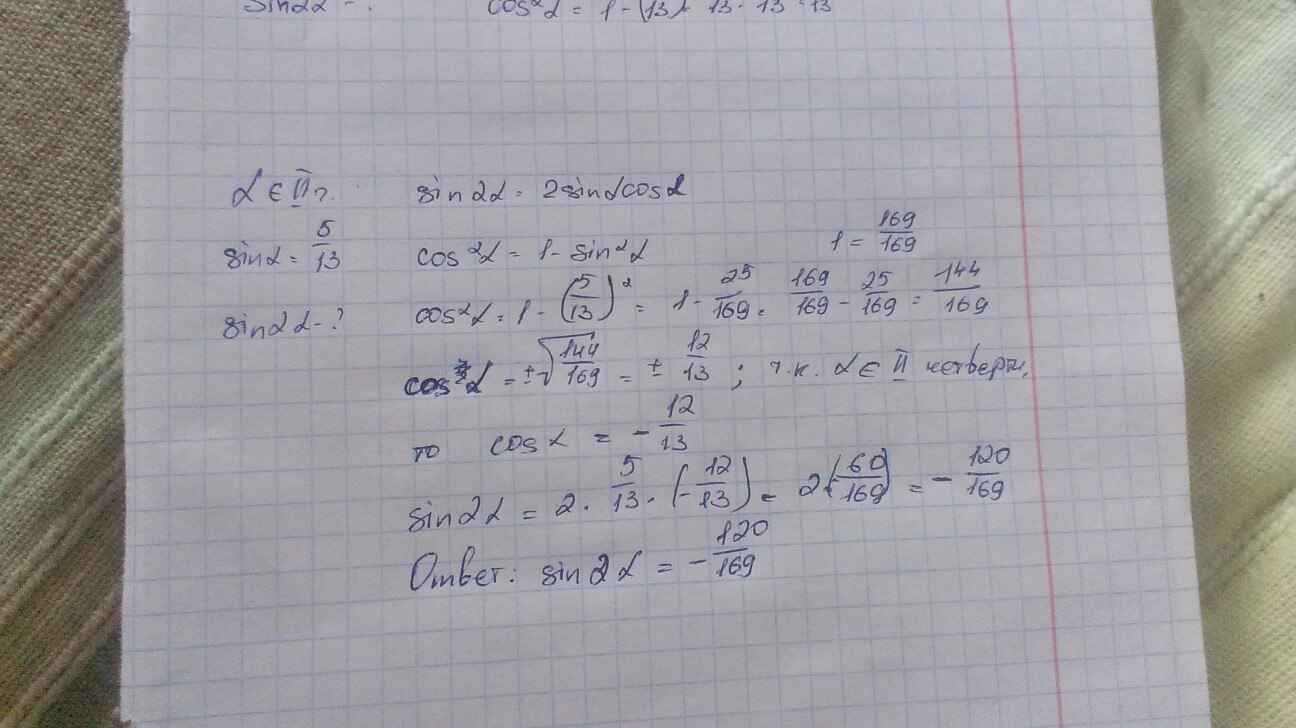 sin2α - ?
α ∈ II г. sin2α = 2sinαcosα
sinα = 5/13 cos²α = 1 - sin²α 1 = 169/169
sin2α - ? cos²α = 1 - (5/13)² = 1 - 25/169 = 169/169 - 25/169 = 144/169
cosα = ±√144/169 = ± 12/13 ; т.к. α ∈ II четверти,
то cosα = - 12/13
sin2α = 2 · 5/13 · (- 12/13) = 2(- 60/169) = - 120/169
Ответ: sin2α = - 120/169